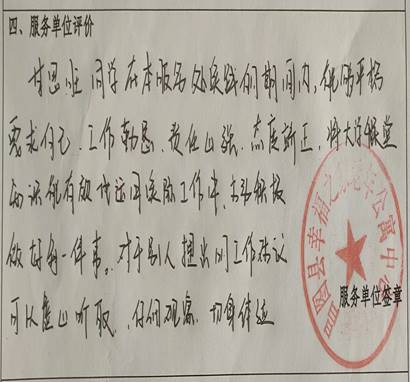 四、服务单位评价
甘思班 同学在本服务处实践的期间内，能够严格
要求自己，工作勤恳，责任心强，态度端正，将大学课堂
的识能有效地运用实际工作中，去积极
做好每一件事。对于别人提出的工作建议
可以虚心听取，仔细观察、切身体验
县幸福之 公寓中
服务单位签章